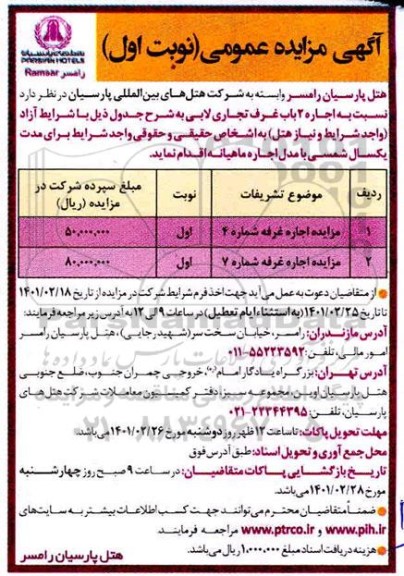 آگهی مزایده عمومی(نوبت اول)
PARSIAN HOTELS
رامسر Ramsar
هتل پارسیان رامسر وابسته به شرکت هتل‌های بین‌المللی پارسیان در نظر دارد
نسبت به اجاره ۲ باب غرف تجاری لابی به شرح جدول ذیل با شرایط آزاد
(واجد شرایط و نیاز هتل) به اشخاص حقیقی و حقوقی واجد شرایط برای مدت
یکسال شمسی با مدل اجاره ماهیانه اقدام نماید.
ردیف موضوع تشریفات نوبت مبلغ سپرده شرکت در مزایده (ریال)
۱ مزایده اجاره غرفه شماره ۴ اول ۵۰,۰۰۰,۰۰۰
۲ مزایده اجاره غرفه شماره ۷ اول ۸۰,۰۰۰,۰۰۰
از متقاضیان دعوت به عمل می آید جهت اخذ فرم شرایط شرکت در مزایده از تاریخ ۱۴۰۱/۰۲/۱۸
تا تاریخ ۱۴۰۱/۰۲/۲۵ (به استثناء ایام تعطیل) در ساعات ۹ الی ۱۲ به آدرس زیر مراجعه فرمایند:
آدرس مازندران: رامسر، خیابان سخت سر (شهید رجایی)، هتل پارسیان رامسر
امور مالی، تلفن: ۵۵۲۲۳۵۹۲-۰۱۱
آدرس تهران: بزرگراه یادگار امام(ره)، خروجی چمران جنوب، ضلع جنوبی
هتل پارسیان اوین، مجموعه سبز، دفتر کمیسیون معاملات شرکت هتل های
پارسیان، تلفن: ۲۲۳۴۴۳۹۵-۰۲۱
مهلت تحویل پاکات: تا ساعت ۱۲ ظهر روز دوشنبه مورخ ۱۴۰۱/۰۲/۲۶ می‌باشد.
محل جمع آوری و تحویل اسناد: طبق آدرس فوق
تاریخ بازگشایی پاکات متقاضیان: در ساعت ۹ صبح روز چهارشنبه
مورخ ۱۴۰۱/۰۲/۲۸ می‌باشد.
ضمناً متقاضیان محترم می‌توانند جهت کسب اطلاعات بیشتر به سایت‌های
www.pih.ir و www.ptrco.ir مراجعه فرمایند
هزینه دریافت اسناد مبلغ ۱,۰۰۰,۰۰۰ ریال می‌باشد.
هتل پارسیان رامسر